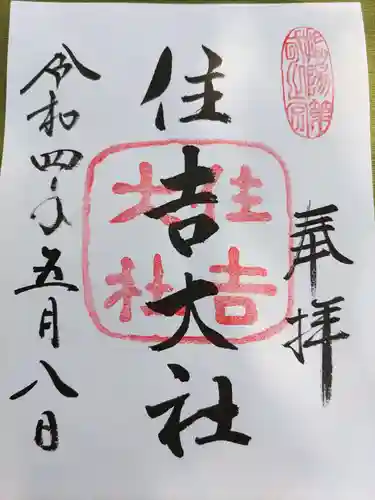 奉拝
住吉大社
令和四年五月八日
住吉大社